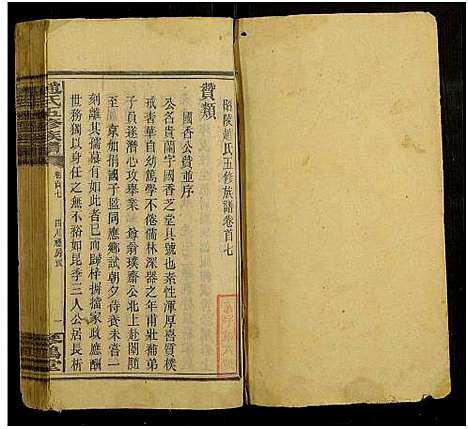 邵陵趙氏五修族譜卷首七
贊類
國香公贊並序
公名貴蘭字國香芝堂其號也素性渾厚喜質樸
戒奢華自幼篤學不倦儒林深器之年甫壯補弟
子員遂潛心攻舉業尊翁璞齋公北上赴闈隨
至京師捐國子監同應鄉試朝夕侍養未嘗一
刻離其孺慕有如此者已而歸梓摒擋家政應酬
世務獨以身任之無不裕如昆季三人公居長析
趙氏五修族譜
卷首七
一